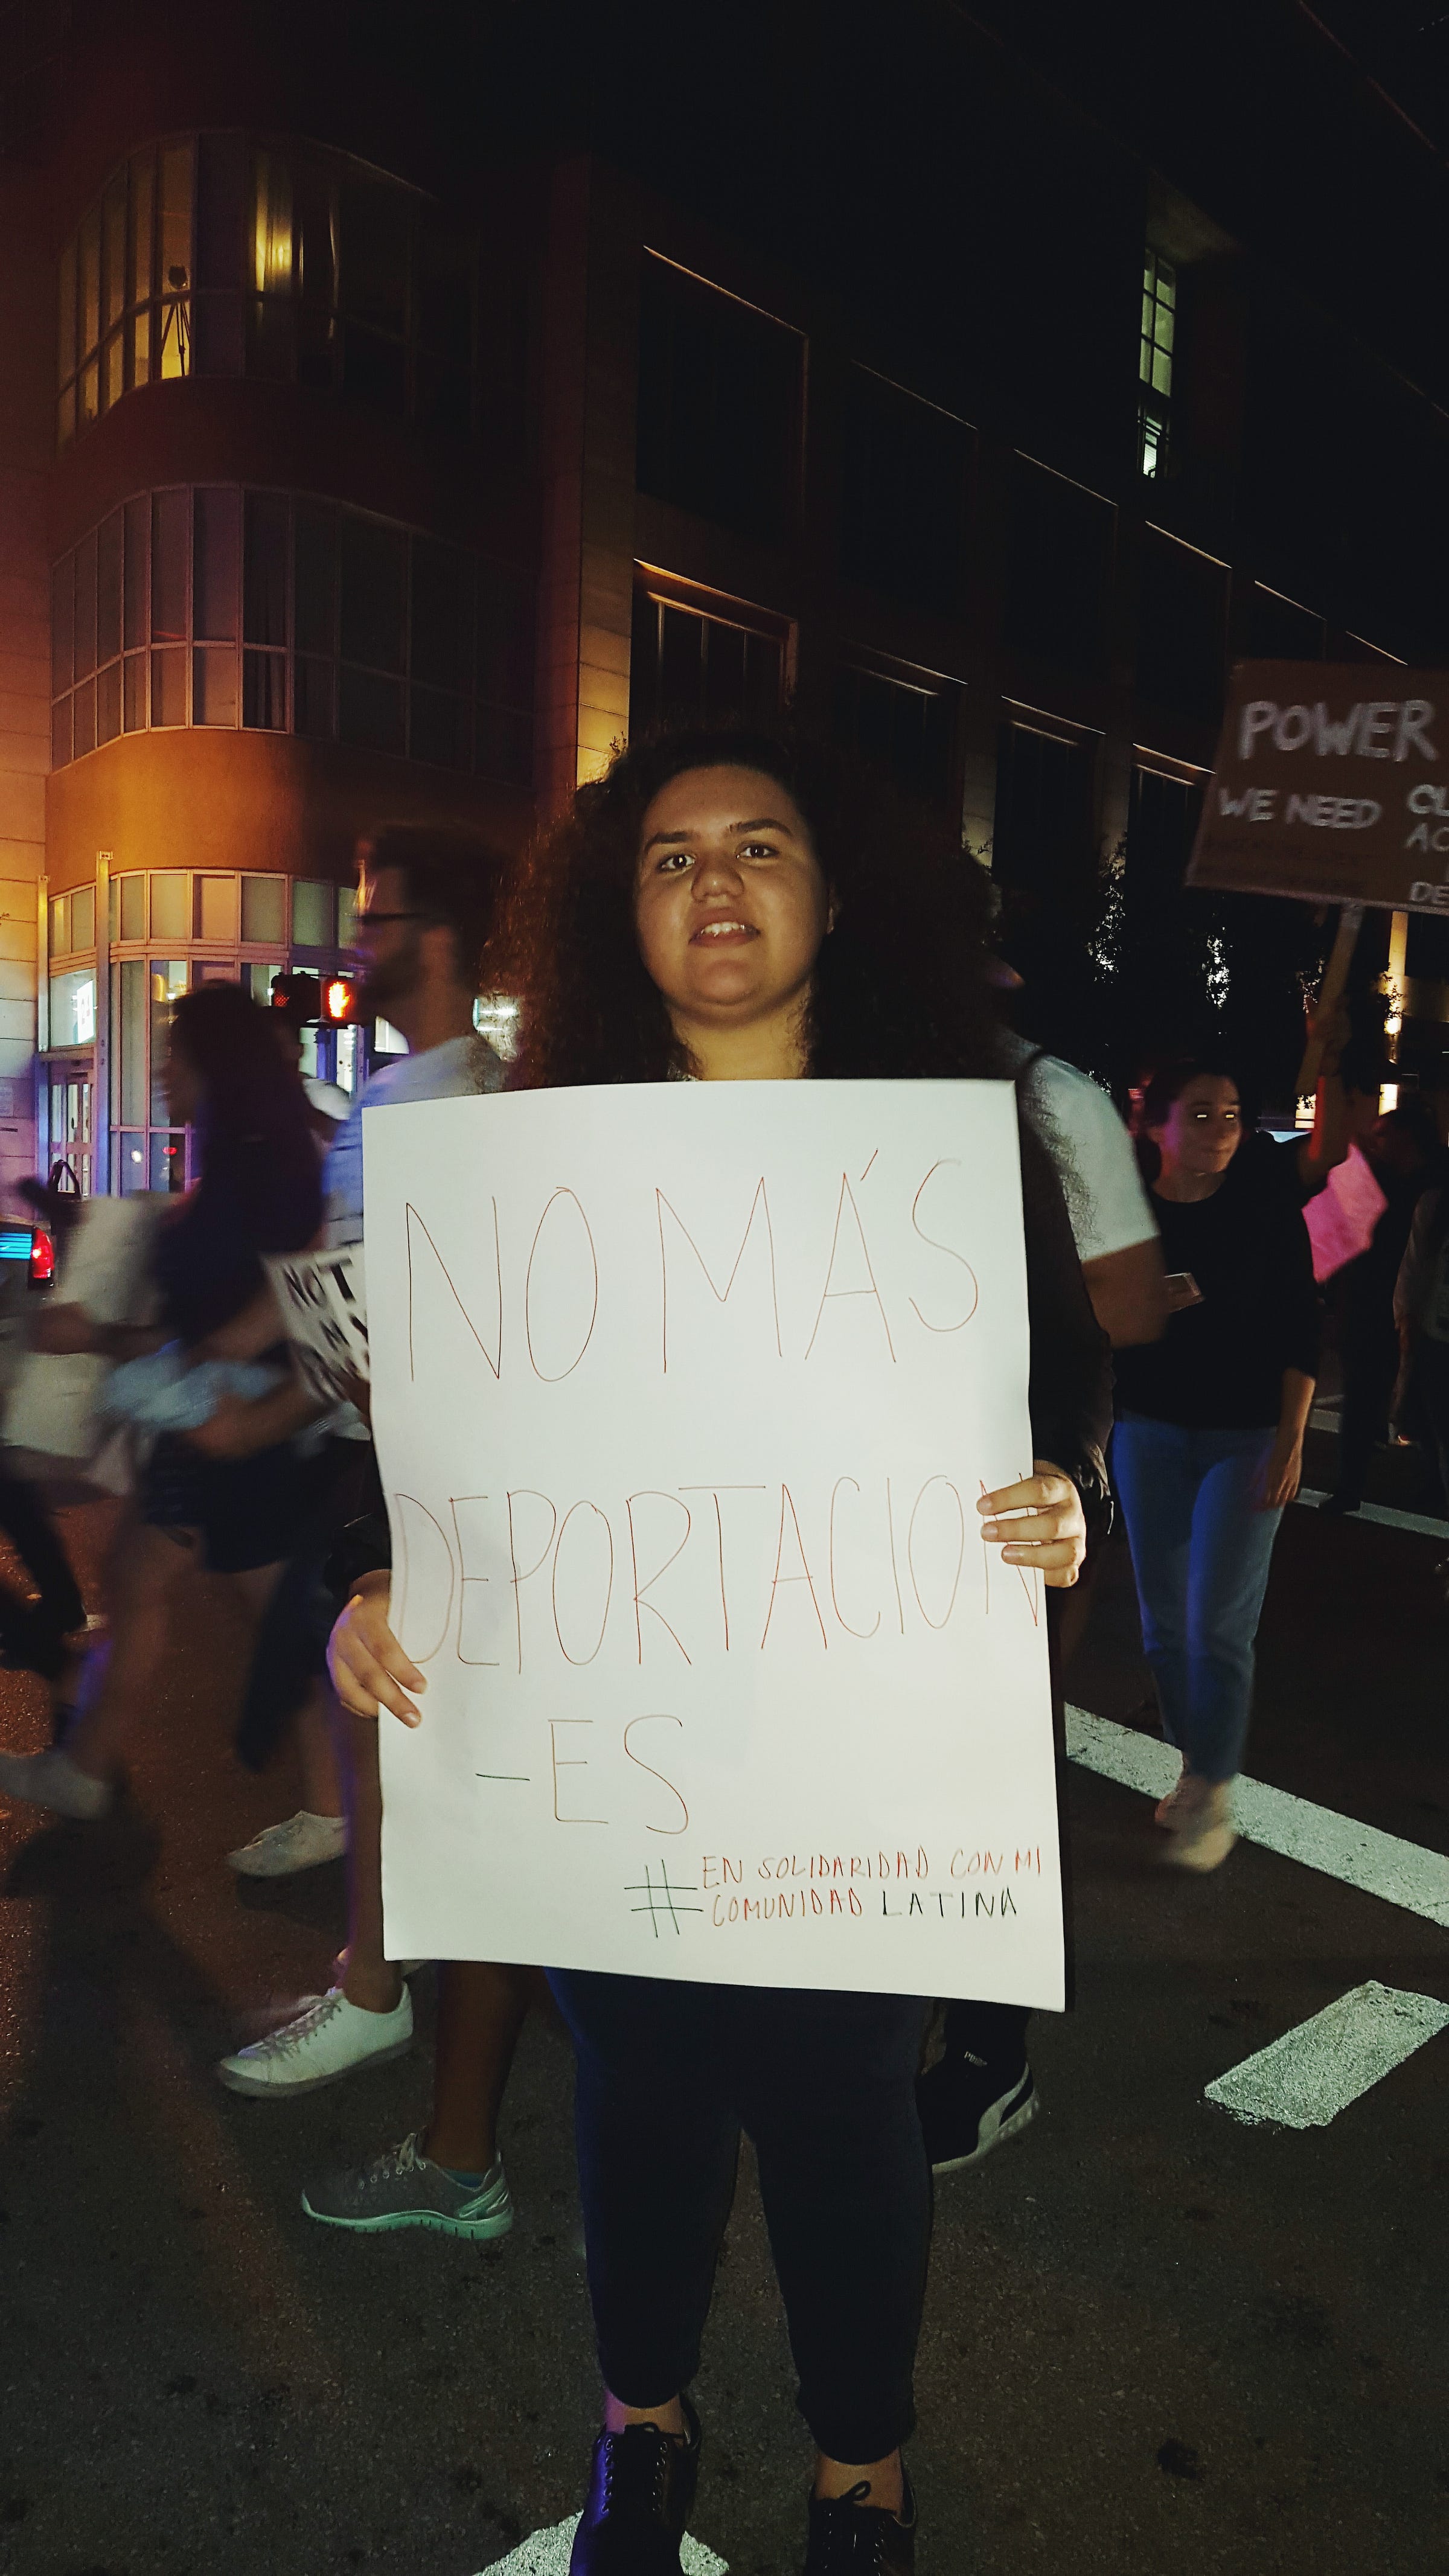 NO MÁS
DEPORTACION
-ES
# EN SOLIDARIDAD CON MI
COMUNIDAD LATINA
POWER
WE NEED
DE
NOT
PUMA